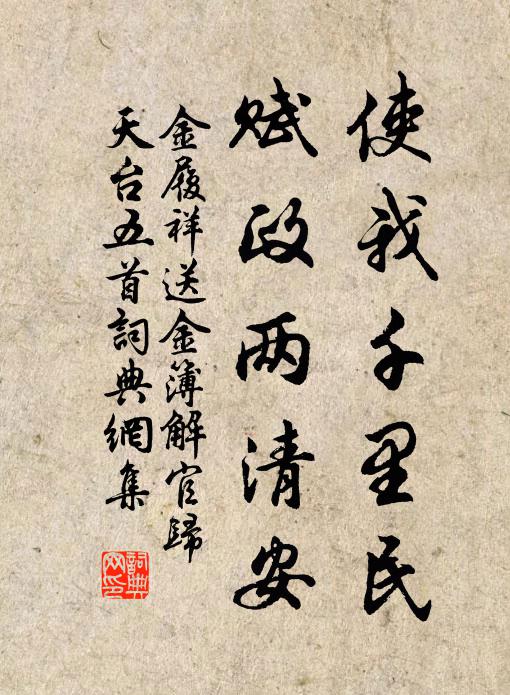 使我千里民
赋政两清安
金履祥送金簿解官歸
天台五首詞典網集
詞典網印